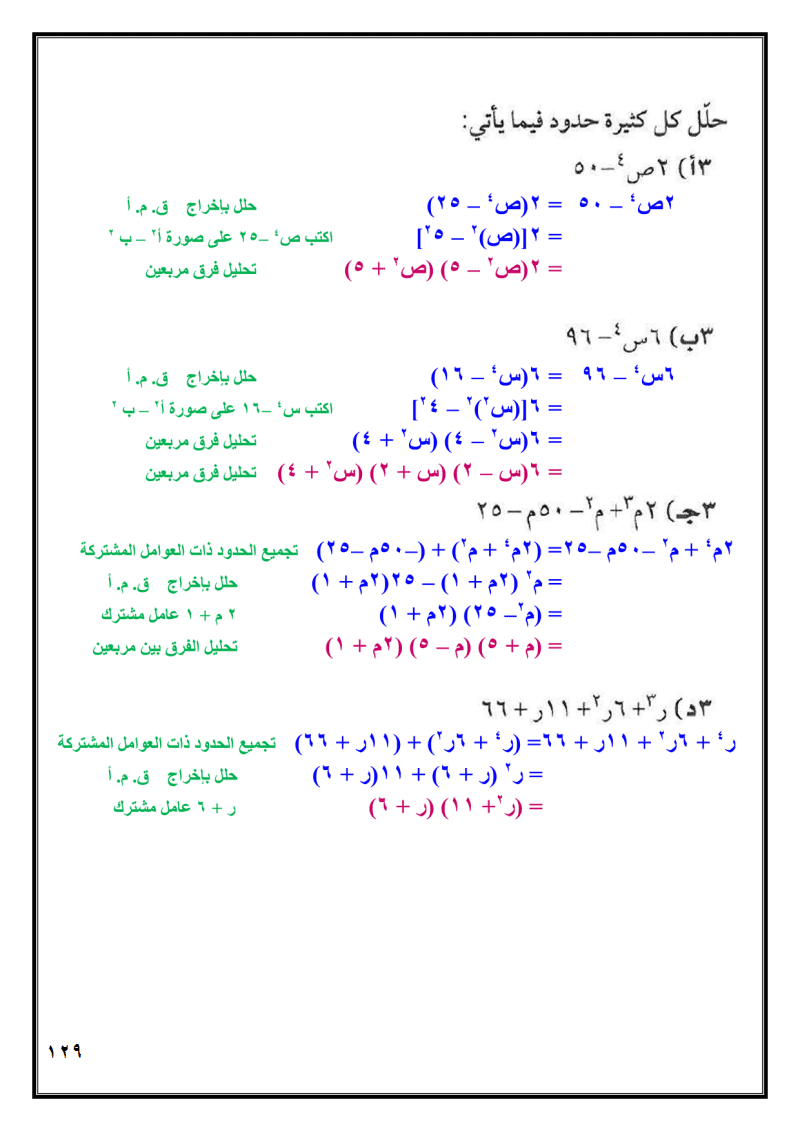 حلّل كل كثيرة حدود فيما يأتي:
٣أ) ٢ص⁴ – ٥٠
٢ص⁴ – ٥٠ = ٢(ص⁴ – ٢٥) حلل بإخراج ق. م. أ
= ٢[(ص)² – ٥²] اكتب ص⁴ – ٢٥ على صورة أ² – ب²
= ٢(ص² – ٥) (ص² + ٥) تحليل فرق مربعين
٣ب) ٦س⁴ – ٩٦
٦س⁴ – ٩٦ = ٦(س⁴ – ١٦) حلل بإخراج ق. م. أ
= ٦[(س²)² – ٤²] اكتب س⁴ – ١٦ على صورة أ² – ب²
= ٦(س² – ٤) (س² + ٤) تحليل فرق مربعين
= ٦(س – ٢) (س + ٢) (س² + ٤) تحليل فرق مربعين
٣جـ) ٢م³ + م² – ٥٠م – ٢٥
٢م⁴ + م² –٥٠م –٢٥= (٢م⁴ + م²) + (–٥٠م –٢٥) تجميع الحدود ذات العوامل المشتركة
= م² (٢م + ١) – ٢٥(٢م + ١) حلل بإخراج ق. م. أ
= (م² – ٢٥) (٢م + ١) ٢ م + ١ عامل مشترك
= (م + ٥) (م – ٥) (٢م + ١) تحليل الفرق بين مربعين
٣د) ر³ + ٦ر² + ١١ر + ٦٦
ر⁴ + ٦ر² + ١١ر + ٦٦= (ر⁴ + ٦ر²) + (١١ر + ٦٦) تجميع الحدود ذات العوامل المشتركة
= ر² (ر + ٦) + ١١(ر + ٦) حلل بإخراج ق. م. أ
= (ر² + ١١) (ر + ٦) ر + ٦ عامل مشترك
١٢٩